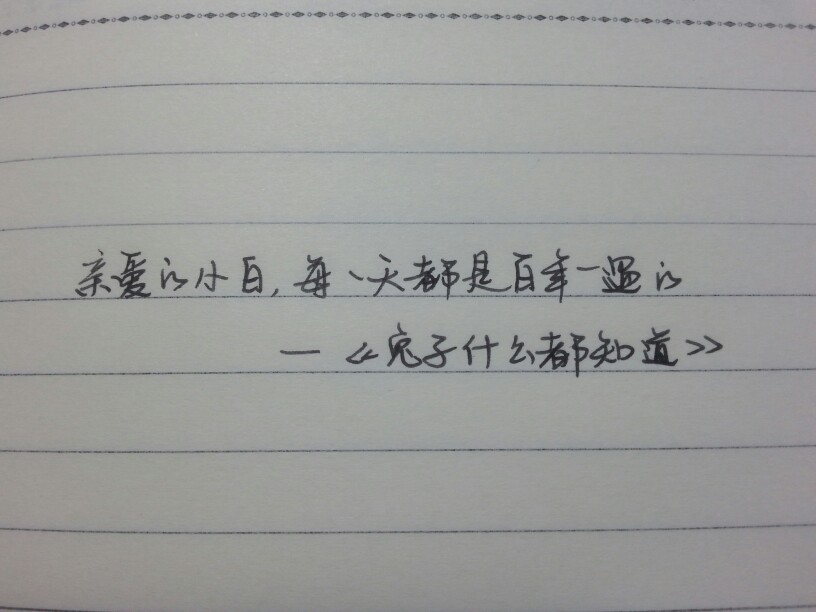 亲爱的小白,每一天都是百年一遇的
—《兔子什么都知道》